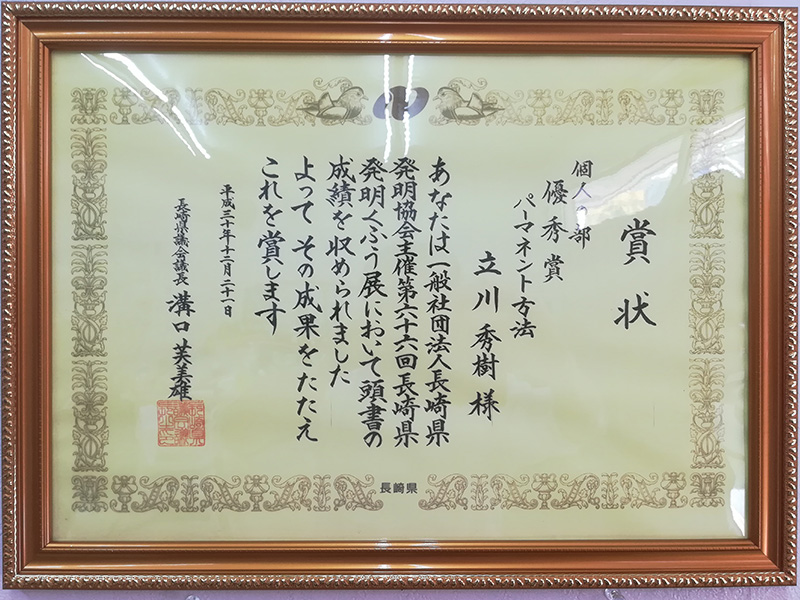 賞状
個人の部
優秀賞
パーマネント方法
立川秀樹様
あなたは一般社団法人長崎県
発明協会主催第六十六回長崎県
発明くふう展において頭書の
成績を収められました
よって その成果をたたえ
これを賞します
平成三十年十二月二十一日
長崎県議会議長 溝口芙美雄
長崎県